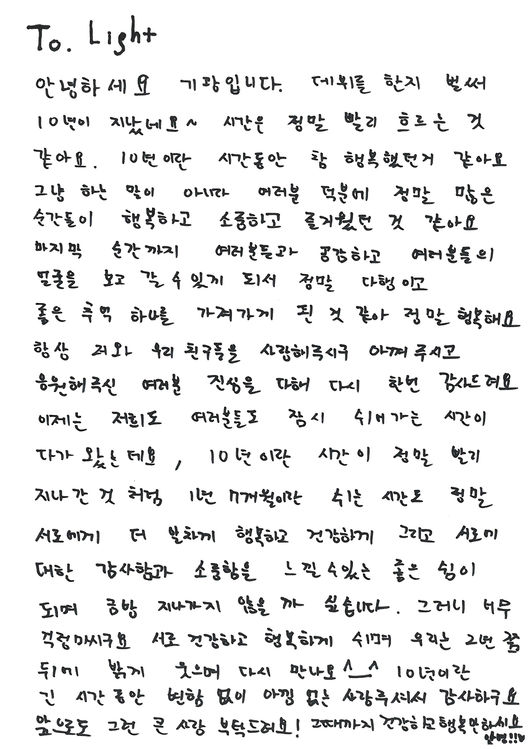 To. Light
안녕하세요 기광입니다. 데뷔를 한지 벌써
10년이 지났네요~ 시간은 정말 빨리 흐르는 것
같아요. 10년이란 시간동안 참 행복했던거 같아요
그냥 하는 말이 아니라 여러분 덕분에 정말 많은
순간들이 행복하고 소중하고 즐거웠던 것 같아요
마지막 순간까지 여러분들과 공감하고 여러분들의
얼굴을 보고 갈 수 있게 되서 정말 다행이고
좋은 추억 하나를 가져가게 된 것 같아 정말 행복해요
항상 저와 우리 친구들을 사랑해주시구 아껴 주시고
응원해주신 여러분 진심을 다해 다시 한번 감사드려요
이제는 저희도 여러분들도 잠시 쉬어가는 시간이
다가 왔는데요, 10년이란 시간이 정말 빨리
지나간 것 처럼 1년 7개월이란 쉬는 시간도 정말
서로에게 더 알차게 행복하고 건강하게 그리고 서로에
대한 감사함과 소중함을 느낄 수있는 좋은 쉼이
되며 금방 지나가지 않을 까 싶습니다. 그러니 너무
걱정마시구요 서로 건강하고 행복하게 쉬며 우리는 2년 쫌
뒤에 밝게 웃으며 다시 만나요^__^ 10년이란
긴 시간동안 변함 없이 아낌 없는 사랑주셔서 감사하구요
앞으로도 그런 큰 사랑 부탁드려요! 그때까지 건강하고 행복만하시요
안녕!!